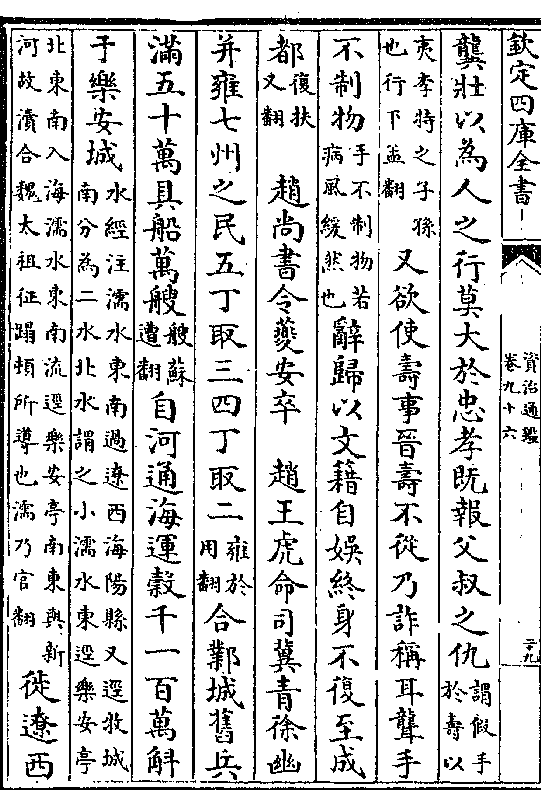 欽定四庫全書
資治通鑑
卷九十六
二十九
龔壯以為人之行莫大於忠孝既報父叔之仇謂假手於壽以
夷李特之子孫也行下孟翻又欲使壽事晉壽不從乃詐稱耳聾手
不制物手不制物若病風緩然也辭歸以文籍自娛終身不復至成
都復扶又翻 趙尚書令夔安卒 趙王虎命司冀青徐幽
并雍七州之民五丁取三四丁取二雍於用翻合鄴城舊兵
滿五十萬具船萬艘艘蘇遭翻自河通海運穀千一百萬斛
于樂安城水經注濡水東南過遼西海陽縣又逕牧城南分為二水北水謂之小濡水東逕樂安亭
北東南入海濡水東南流逕樂安亭南東與新河故瀆合魏太祖征蹋頓所導也濡乃官翻徙遼西